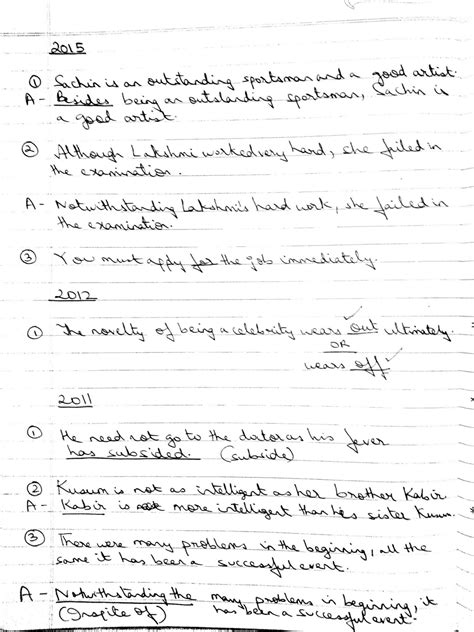 2015
① Sachin is an outstanding sportsman and a good artist.
A - Besides being an outstanding sportsman, Sachin is
a good artist.
② Although Lakshmi worked very hard, she failed in
the examination.
A - Notwithstanding Lakshmi's hard work, she failed in
the examination.
③ You must apply for the job immediately.
2012
① The novelty of being a celebrity wears out ultimately.
OR
wears off
2011
① He need not go to the doctor as his fever
has subsided. (subside)
② Kusum is not as intelligent as her brother Kabir
A - Kabir is more intelligent than his sister Kusum.
③ There were many problems in the beginning, all the
same it has been a successful event.
A - Notwithstanding the many problems in beginning, it
(Inspite of) has been a successful event.